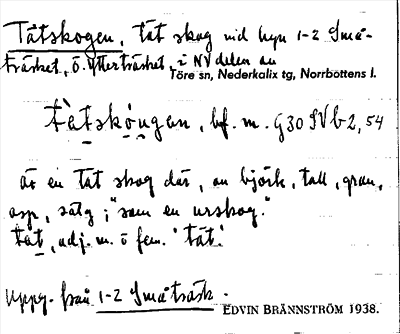 Tätskogen, tät skog vid byn 1-2 Små-
träsket, ö. Ytterträsket, i NV delen av
Töre sn, Nederkalix tg, Norrbottens l.
tätskóugen, bf. m. G30 SV b 2, 54
är en tät skog där, av björk, tall, gran,
asp, sälg; "som en urskog."
tät, adj. m. o fem. 'tät'.
Uppg. från 1-2 Småträsk.
EDVIN BRÄNNSTRÖM 1938.